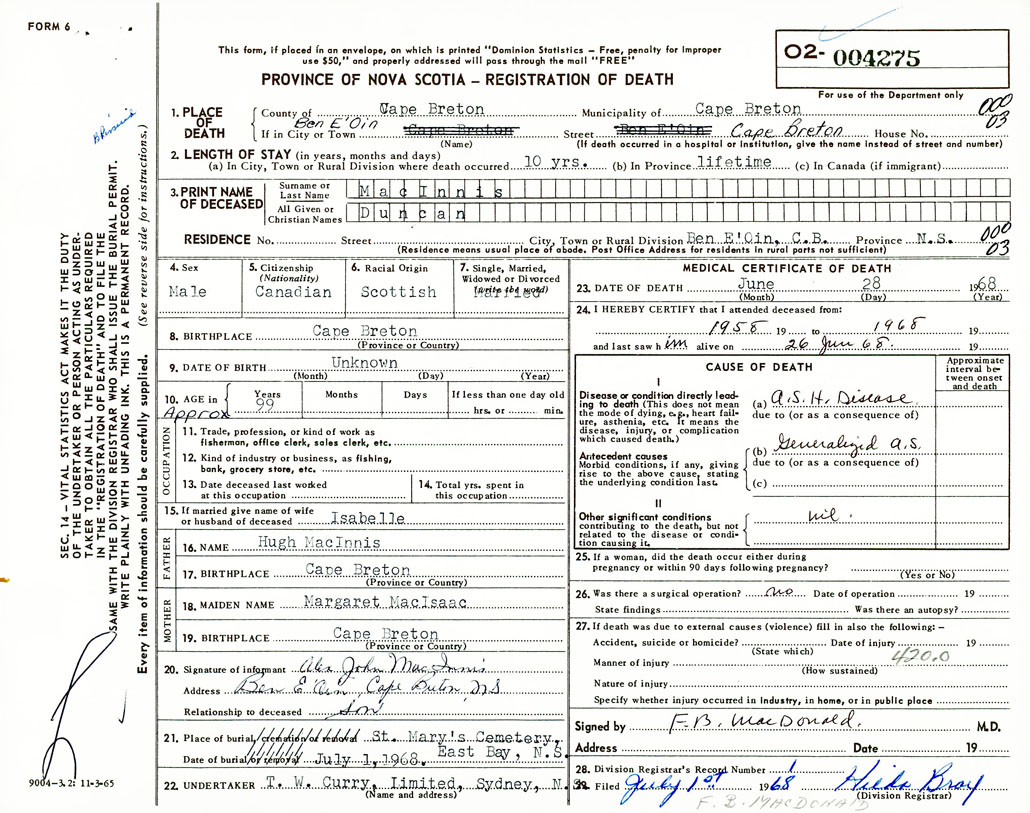 FORM 6
This form, if placed in an envelope, on which is printed "Dominion Statistics – Free, penalty for improper
use $50," and properly addressed will pass through the mail "FREE"
PROVINCE OF NOVA SCOTIA – REGISTRATION OF DEATH
O2- 004275
For use of the Department only
1. PLACE OF DEATH
County of Cape Breton Municipality of Cape Breton 000 03
If in City or Town Ben E'Oin Cape Breton Street Ben E'Oin Cape Breton House No.
(Name) (If death occurred in a hospital or institution, give the name instead of street and number)
2. LENGTH OF STAY (in years, months and days)
(a) In City, Town or Rural Division where death occurred 10 yrs. (b) In Province lifetime (c) In Canada (if immigrant)
3. PRINT NAME OF DECEASED
Surname or Last Name MacInnis
All Given or Christian Names Duncan
RESIDENCE No. Street City, Town or Rural Division Ben E'Oin, C.B. Province N.S. 000 03
(Residence means usual place of abode. Post Office Address for residents in rural parts not sufficient)
4. Sex
Male
5. Citizenship
(Nationality)
Canadian
6. Racial Origin
Scottish
7. Single, Married,
Widowed or Divorced
(write the word)
Married
8. BIRTHPLACE Cape Breton
(Province or Country)
9. DATE OF BIRTH Unknown
(Month) (Day) (Year)
10. AGE in Approx
Years 99 Months Days If less than one day old
hrs. or min.
OCCUPATION
11. Trade, profession, or kind of work as
fisherman, office clerk, sales clerk, etc.
12. Kind of industry or business, as fishing,
bank, grocery store, etc.
13. Date deceased last worked
at this occupation
14. Total yrs. spent in
this occupation
15. If married give name of wife
or husband of deceased Isabelle
FATHER
16. NAME Hugh MacInnis
17. BIRTHPLACE Cape Breton
(Province or Country)
MOTHER
18. MAIDEN NAME Margaret MacIsaac
19. BIRTHPLACE Cape Breton
(Province or Country)
20. Signature of informant Alex John MacInnis
Address Ben E'Oin, Cape Breton N.S.
Relationship to deceased son
21. Place of burial, cremation or removal St. Mary's Cemetery,
East Bay, N.S.
Date of burial or removal July 1, 1968.
22. UNDERTAKER T. W. Curry, Limited, Sydney, N.S.
(Name and address)
MEDICAL CERTIFICATE OF DEATH
23. DATE OF DEATH June 28 1968
(Month) (Day) (Year)
24. I HEREBY CERTIFY that I attended deceased from:
1958 19 to 1968 19
and last saw him alive on 26 June 68. 19
CAUSE OF DEATH
Approximate
interval be-
tween onset
and death
I
Disease or condition directly lead-
ing to death (This does not mean
the mode of dying, e.g., heart fail-
ure, asthenia, etc. It means the
disease, injury, or complication
which caused death.)
(a) A.S.H. Disease
due to (or as a consequence of)
Antecedent causes
Morbid conditions, if any, giving
rise to the above cause, stating
the underlying condition last.
(b) Generalized A.S.
due to (or as a consequence of)
(c)
II
Other significant conditions
contributing to the death, but not
related to the disease or condi-
tion causing it.
nil.
25. If a woman, did the death occur either during
pregnancy or within 90 days following pregnancy?
(Yes or No)
26. Was there a surgical operation? no Date of operation 19
State findings Was there an autopsy?
27. If death was due to external causes (violence) fill in also the following: –
Accident, suicide or homicide? Date of injury 19
(State which) 420.0
Manner of injury
(How sustained)
Nature of injury
Specify whether injury occurred in industry, in home, or in public place
Signed by F.B. MacDonald. M.D.
Address Date 19
28. Division Registrar's Record Number 1
29. Filed July 1st 1968 Hilda Bray
(Division Registrar)
F. B. MACDONALD
SEC. 14 – VITAL STATISTICS ACT MAKES IT THE DUTY
OF THE UNDERTAKER OR PERSON ACTING AS UNDER-
TAKER TO OBTAIN ALL THE PARTICULARS REQUIRED
IN THE "REGISTRATION OF DEATH" AND TO FILE THE
SAME WITH THE DIVISION REGISTRAR WHO SHALL ISSUE THE BURIAL PERMIT.
WRITE PLAINLY WITH UNFADING INK. THIS IS A PERMANENT RECORD.
Every item of information should be carefully supplied. (See reverse side for instructions.)
9004–3.2: 11-3-65